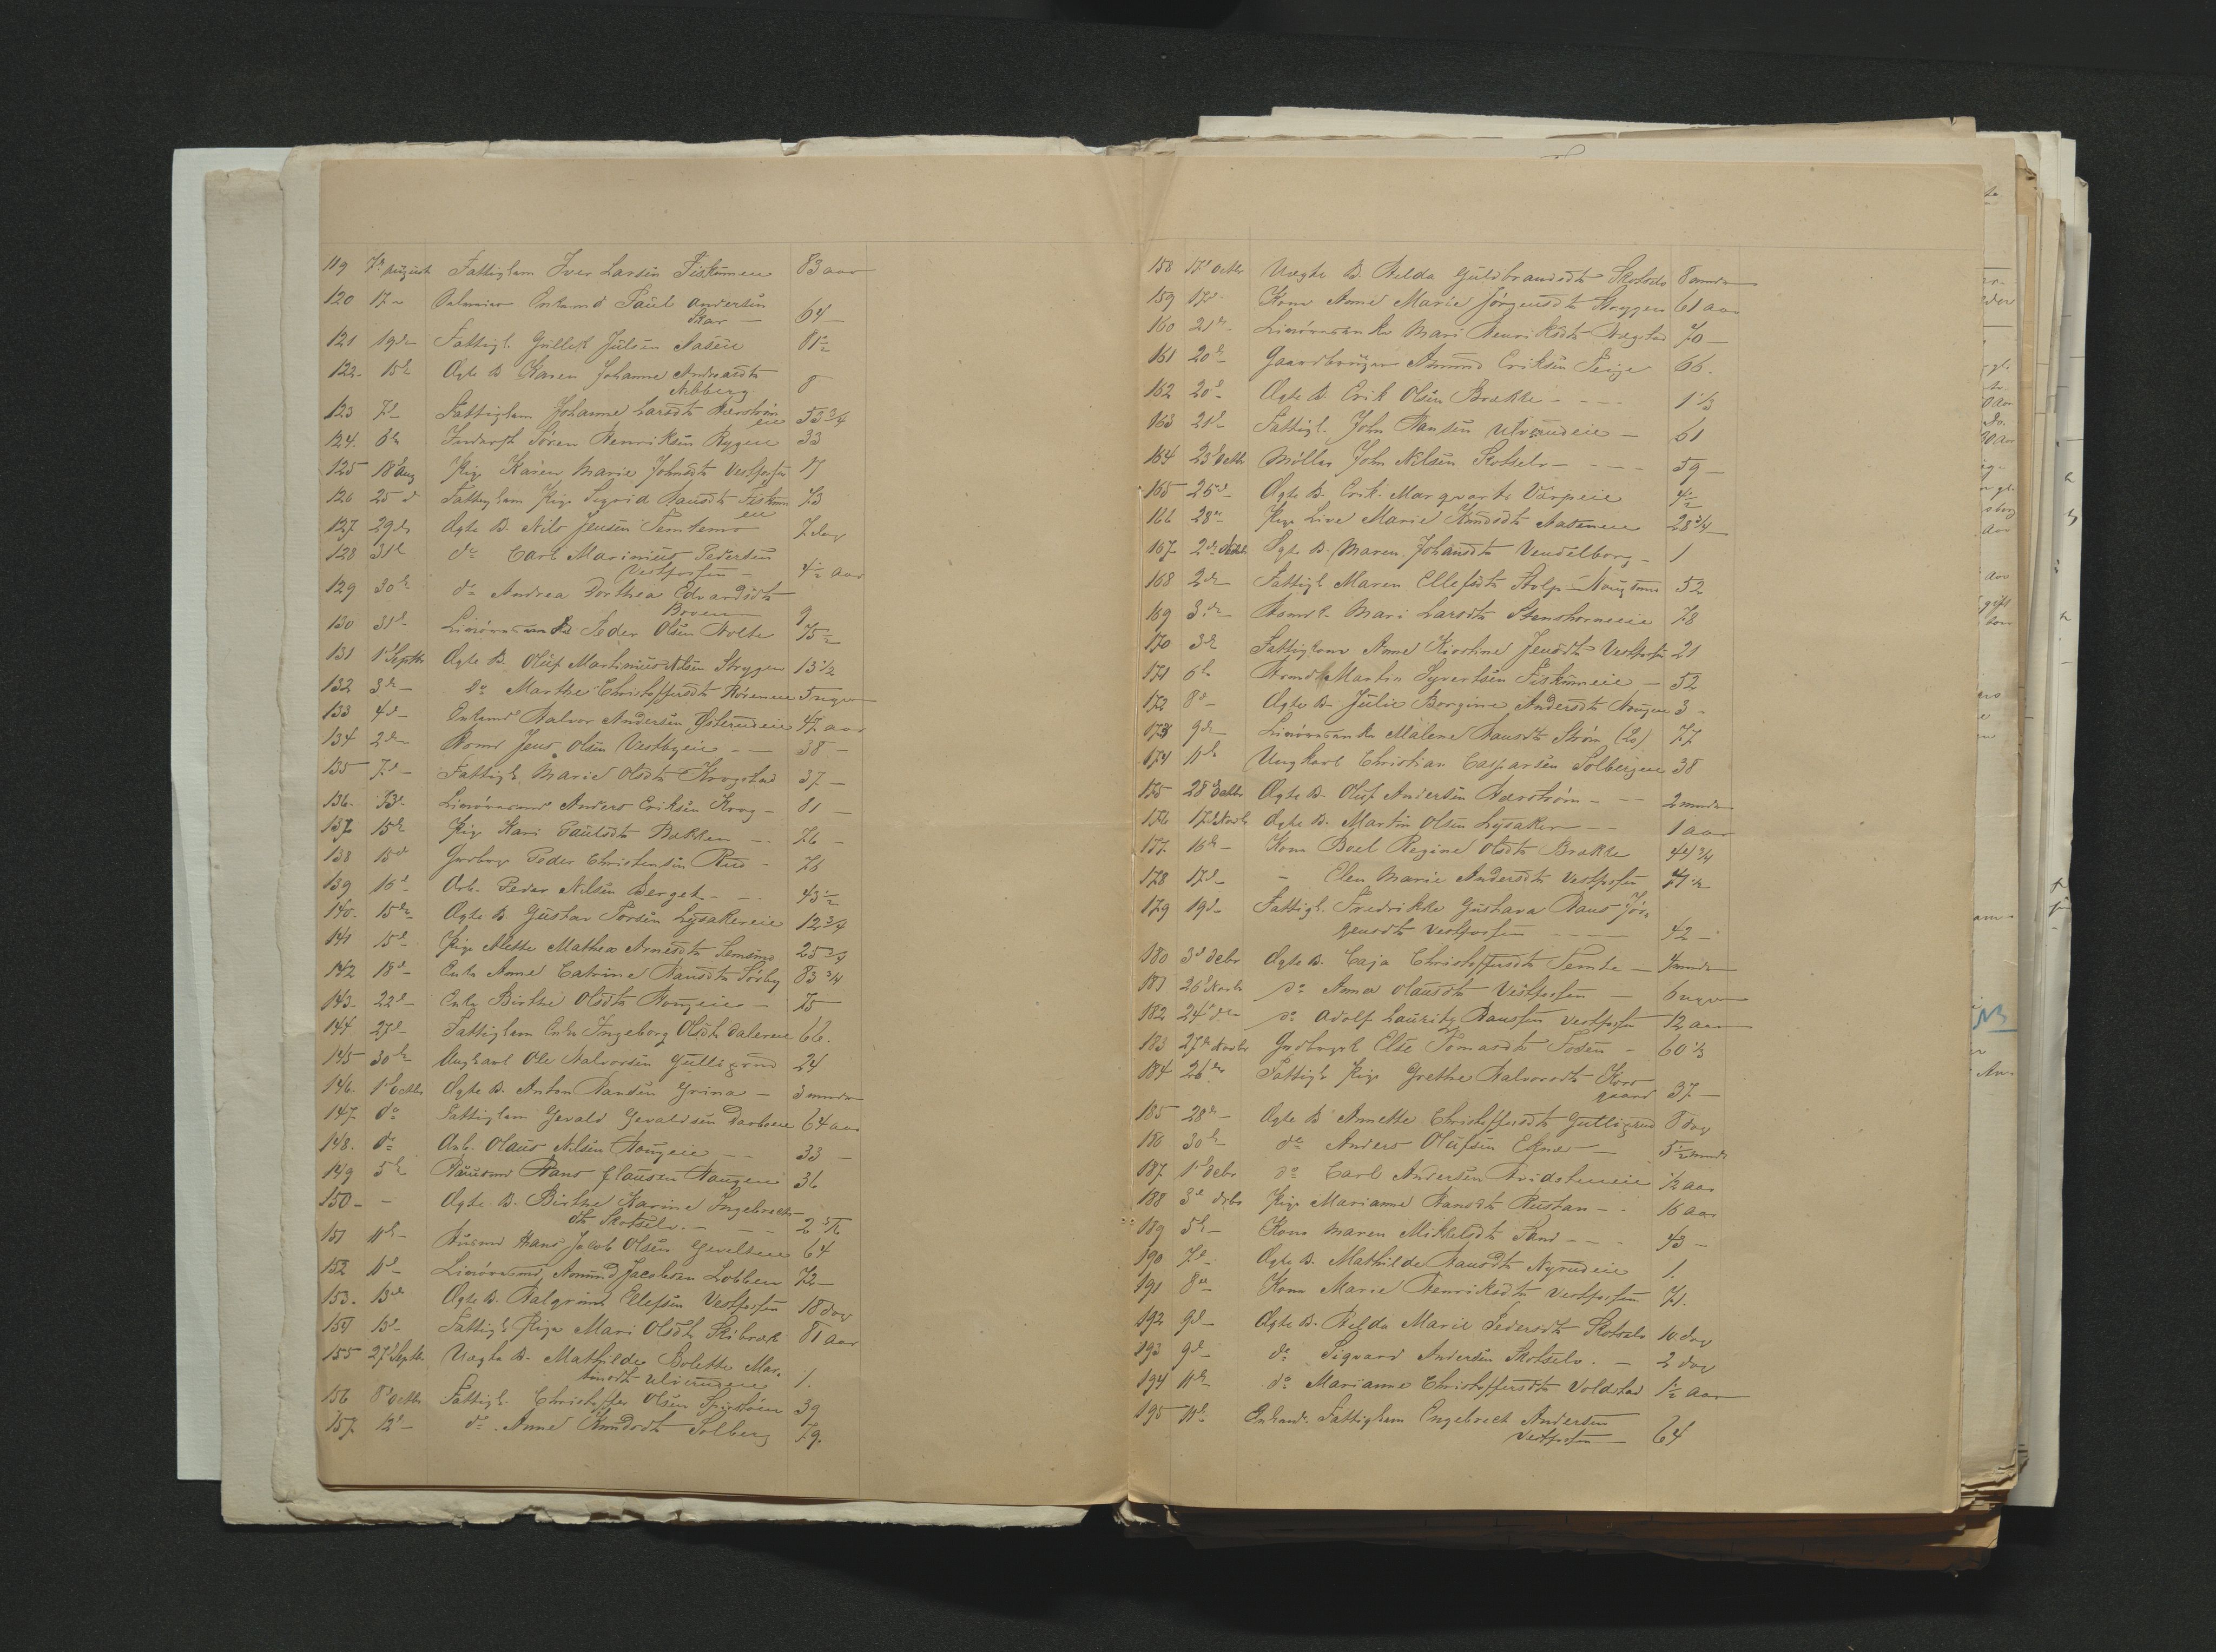 119 7de August Fattiglem Iver Larsen Fiskumeie 83 aar
120 17de Enkemd Paul Andersen
Skar — 64 —
121 19de Fattigl. Gullik Julsen Aaseie 81½
122 15de Ægte B. Karen Johanne Andreasdtr
Abberg 8
123 7de Fattiglem Johanne Larsdtr Hærström
eie 53¾
124 6te Inderst Sören Henriksen Rygeie 33
125 18de Aug Pige Karen Marie Johnsdtr Vestfossen 17
126 25 d Fattiglem Pige Sigrid Hansdtr Fiskum
eie 73
127 29de Ægte B. Nils Jensen Temtemo 7 dag
128 31te do Carl Marinius Pedersen
Vestfossen — 4½ aar
129 30te do Andrea Dorthea Edvardsdtr
Boven 9
130 31te Peder Olsen Holte 75½
131 1ste Septbr Ægte B. Oluf Martinius Olsen Strygen 13½
132 3de — do Marthe Christoffersdtr Rörmeneie 5 uger
133 4de — Enkemd Halvor Andersen Østerudeie 47 aar
134 2de — Jens Olsen Vestbyeie — — 38 —
135 7de — Fattigl. Marie Olsdtr Krogstad 37 —
136 13de Anders Eriksen Krog — 81 —
137 15de Pige Kari Paulsdtr Bakken — 76 —
138 15de Grdbrgr Peder Christensen Rud — 76
139 16de Arb. Peder Nilsen Berget — 43½
140 15de Ægte B. Gustav Torsen Lysakereie 12¾
141 15de Pige Alette Mathea Arnesdtr Semsmo 25¾
142 18de — Enke Anne Catrine Hansdtr Sörby 83¾
143 22de — Enke Birthe Olsdtr Hougeie — 75
144 27de — Fattiglem Enke Ingeborg Olsdtr Daleneie 66.
145 30te — Ungkarl Ole Halvorsen Gulligrud 24
146 1ste Octbr Ægte B. Anton Hansen Grina — 3 mndr
147 do Fattiglem Gevald Gevaldsen 64 aar
148 do Arb. Olaus Nilsen Hougeie — — 33 —
149 5te Huusmd Hans Clausen Haugen 36
150 — — Ægte B. Birthe Karine Ingebrechts
dtr Skotselv — — 2
151 11te — Husmd Hans Jacob Olsen Gevelteie 64
152 11te — Amund Jacobsen Lobben 72 —
153 13de Ægte B. Halgrim Ellefsen Vestfossen 18 dag
154 13de — Fattigl. Pige Mari Olsdtr Skibræk 81 aar
155 27de Septbr Uægte B. Mathilde Bolette Mar-
tinsdtr Ulverudeie 1.
156 8de Octbr Fattigl. Christoffer Olsen 39
157 12te — do Anne Knudsdtr Solberg 79.
158 17de Octbr Uægte B. Helda Guldbrandsdtr Skotselv 8 mndr
159 17de — Kone Anne Marie Jörgensdtr Stryggen 61 aar
160 21de — Mari Henriksdtr Hægstad 70 —
161 20de — Gaardbruger Amund Eriksen Teige 66.
162 20de — Ægte B. Erik Olsen Brække — — — 1⅓
163 21de — Fattigl. John Hansen Ulverudeie — 61
164 23de Octbr Møller John Nilsen Skotselv — — — 59 —
165 25de — Ægte B. Erik Marqvarts Værpeie 4½
166 28de — Pige Live Marie Knudsdtr Aaseneie 28¾
167 2de Novbr Ægte B. Maren Johansdtr Vendelborg — 1
168 2de — Fattigl Maren Ellefsdtr Stolp — 52
169 3de — Mari Larsdtr Stenshorneie 78
170 3de Fattiglem Anne Kirstine Jensdtr Vestfossen 21
171 6te Martin Syvertsen Fiskumeie — 52
172 8de — Ægte B. Julie Borgine Andersdtr Haugen 3 —
173 9de — Malene Hansdtr Ström (Lo) 77
174 11te Ungkarl Christian Casparsen Solbergeie 38
175 28 Octbr Ægte B. Oluf Andersen Hærström — — 2 mndr
176 17de Novbr Ægte B. Martin Olsen Lysaker — — 1 aar
177 16de — Kone Boel Regine Olsdtr Brække 44¾
178 17de — — Elen Marie Andersdtr Vestfossen 41½
179 19de — Fattigl. Fredrikke Gustava Hans Jör-
gensdtr Vestfossen — — — 42 —
180 3de Debr Ægte B. Caja Christoffersdtr Temte — 4 mndr
181 26de Novbr do Anna Olausdtr Vestfossen — 6 uger
182 24de do do Adolf Lauritz Hanssen Vestfossen 12 aar
183 27de Novbr Grdbrgrk Else Tomasdtr Fosen — 60⅓
184 26de Fattigl Pige Grethe Halvorsdtr Kors
gaard 37 —
185 28de — Ægte B. Annette Christoffersdtr Gulligrud 8 dag
186 30te do Anders Olufsen Eknes — 5½ mndr
187 1ste Debr do Carl Andersen Hvidsteneie ½ aar
188 3de Debr Pige Marianne Hansdtr Rustan — — 16 aar
189 5te — Kone Maren Mikkelsdtr Sand — — — 43 —
190 7de — Ægte B. Mathilde Hansdtr Nyrudeie 1.
191 8de — Kone Marie Henriksdtr Vestfossen 71.
192 9de — Ægte B. Helda Marie Pedersdtr Skotselv 10 dag
193 9de — do Sigvard Andersen Skotselv. — 2 dag
194 11te — do Marianne Christoffersdtr Voldstad 1½ aar
195 11te Enkemd. Fattiglem Engebrecht Andersen
Vestfossen — 64